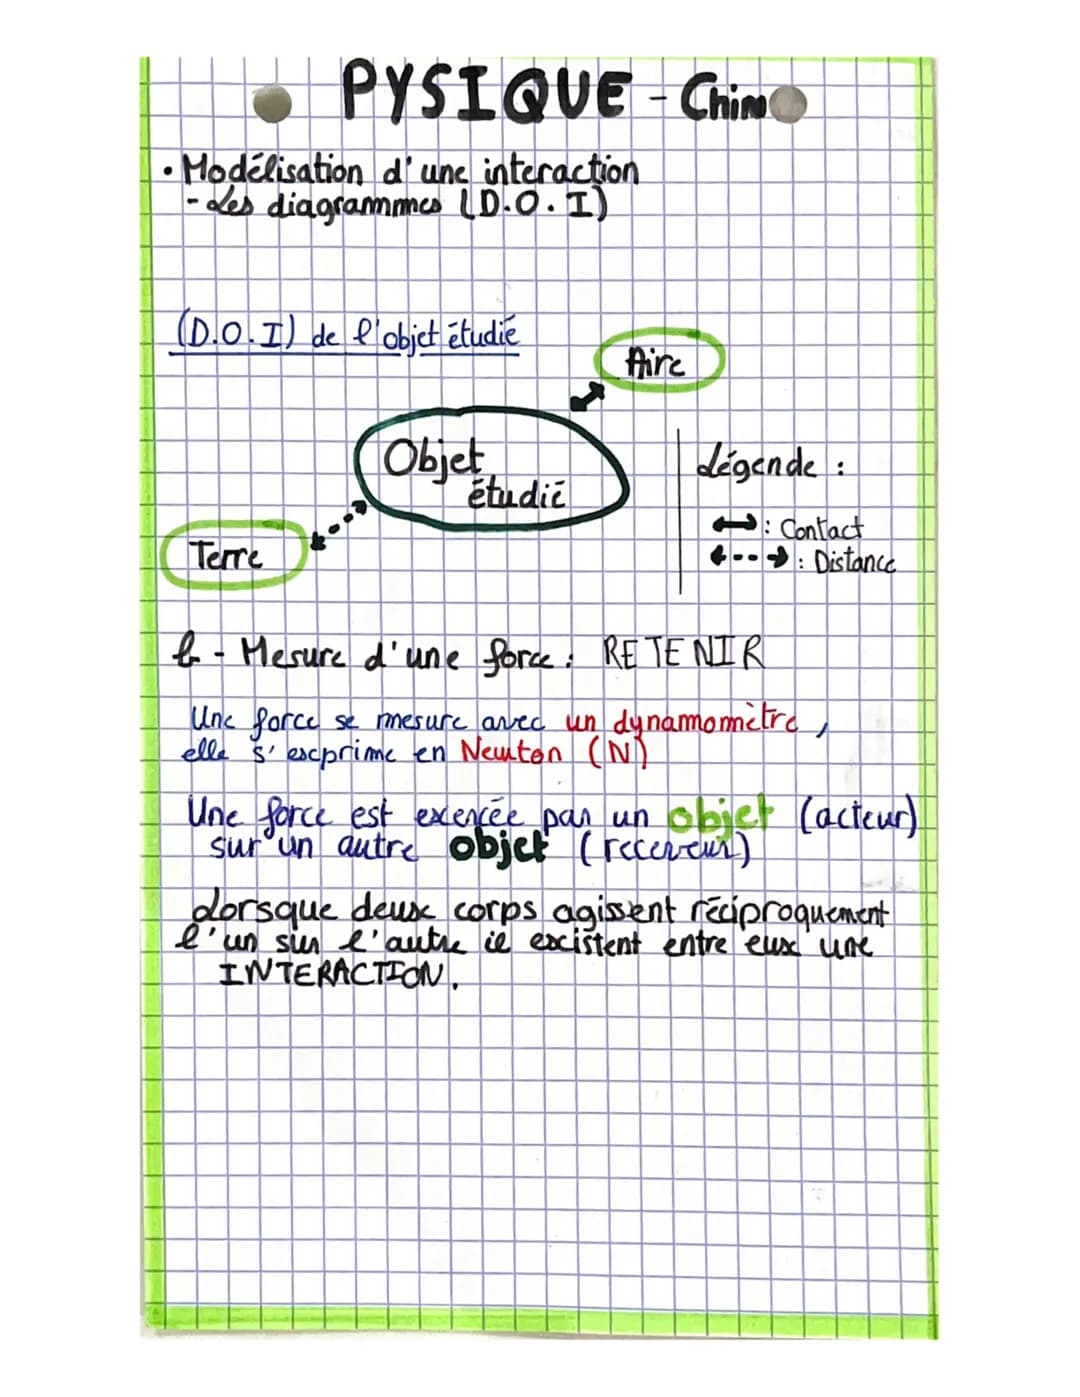 PYSIQUE - Chim
• Modélisation d'une interaction
- Les diagrammmes (D.O.I)
(D.O.I) de l'objet étudié
Aire
Objet
étudié
Légende :
: Contact
: Distance
Terre
b - Mesure d'une force : RETENIR
Une force se mesure avec un dynamomètre,
elle s'exprime en Newton (N)
Une force est exercée par un objet (acteur)
sur un autre objet (receveur)
Lorsque deux corps agissent réciproquement
l'un sur l'autre il existent entre eux une
INTERACTION.